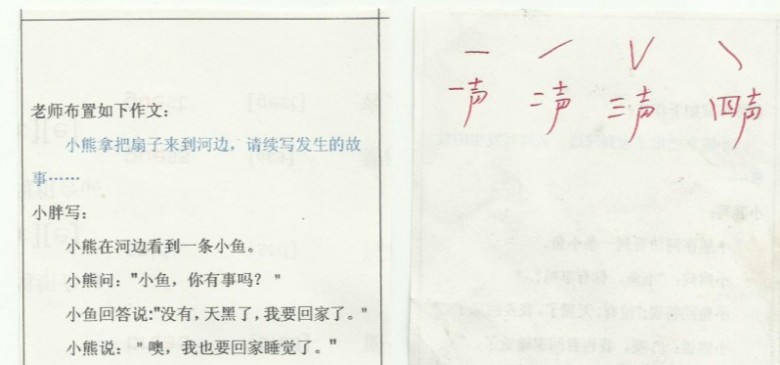 老师布置如下作文：
小熊拿把扇子来到河边，请续写发生的故
事……
小胖写：
小熊在河边看到一条小鱼。
小熊问："小鱼，你有事吗？"
小鱼回答说："没有，天黑了，我要回家了。"
小熊说："噢，我也要回家睡觉了。"
一声 二声 三声 四声